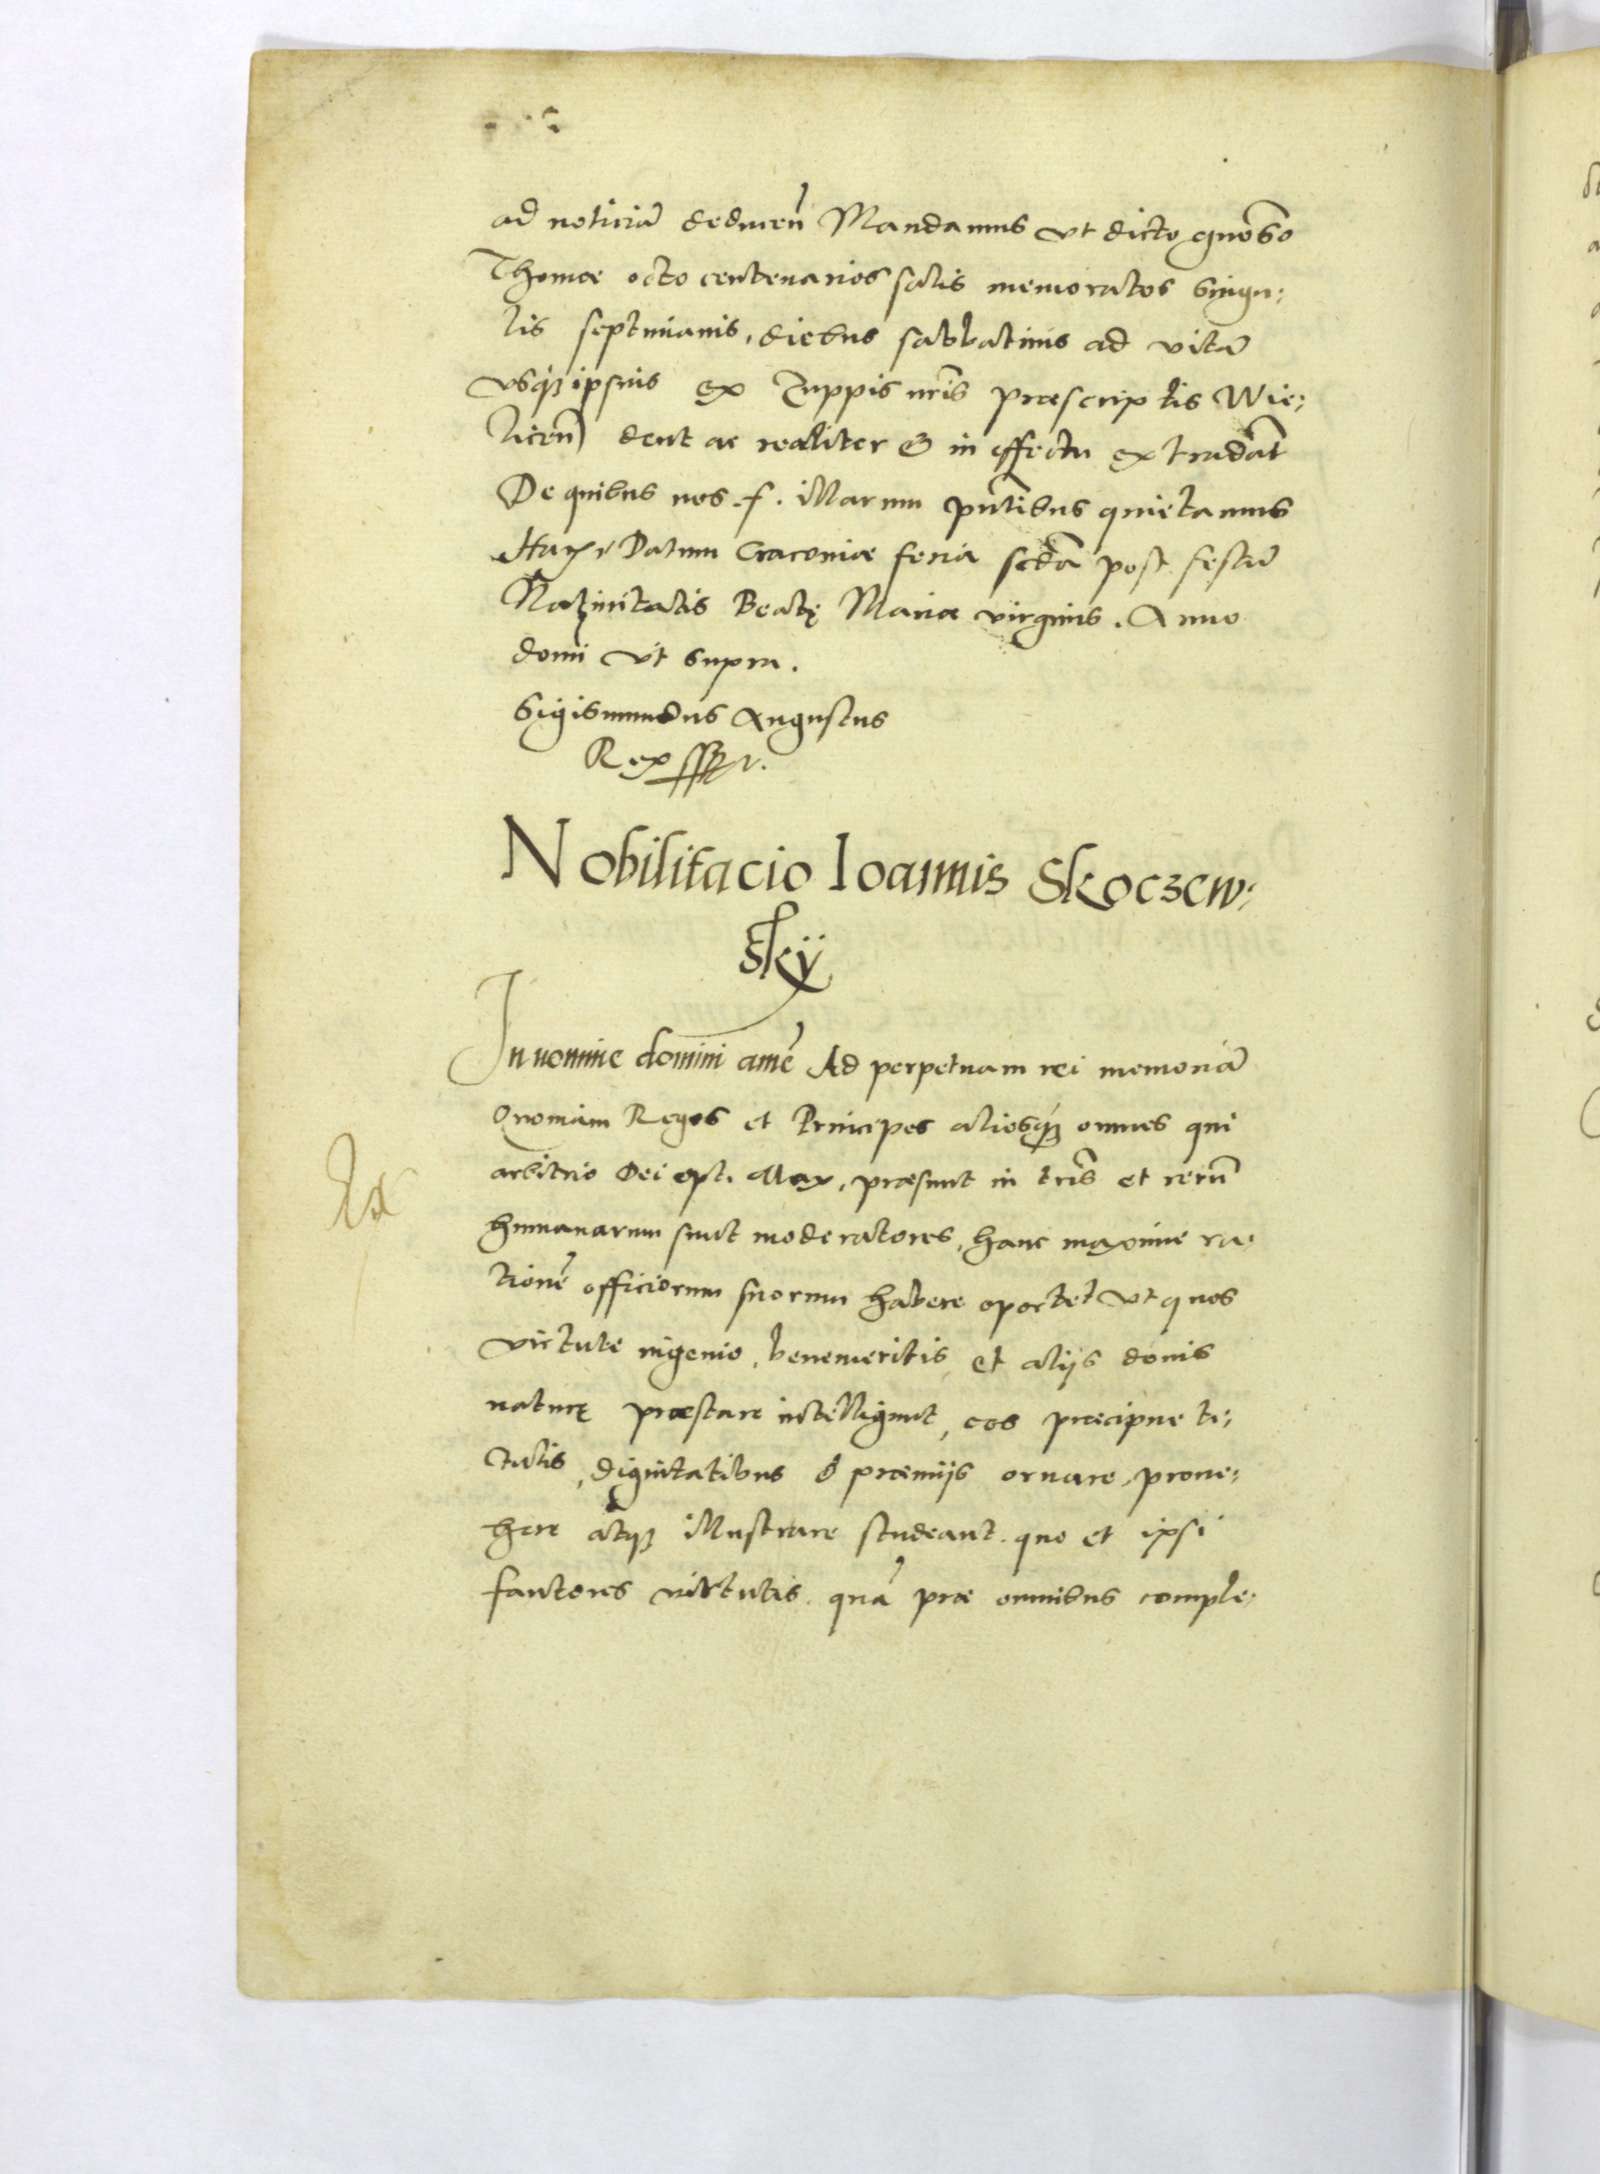 ad noticiã deducen̄ Mandamus vt dicto gnoso
Thomæ octo centenarios salis memoratos singu:
lis septimanis, diebus sabbatinis ad vitã
vsq; ipsius ex Zuppis nr̄is præscriptis Wie:
licen̄ dent ac realiter & in effectu extradãt
De quibus nos .f. illarum pn̄tibus quietamus
Datum Cracouiæ feria scđa post festũ
Natiuitatis Beatę Mariæ virginis. Anno
domi vt supra.
Sigismundus Augustus
Rex
Nobilitacio Ioannis Skoczew:
skÿ
In nomine domini amẽ Ad perpetuam rei memoriã
Quoniam Reges et Principes aliosq; omnes qui
arbitrio Dei opt. Max. præsunt in tr̄is et rerũ
humanarum sunt moderatores, hanc maxime ra:
tionẽ officiorum suorum habere oportet vt quos
virtute ingenio, benemeritis et aliis donis
naturę præstare intelligunt, eos præcipue ti:
tulis, dignitatibus & præmijs ornare, proue:
here atq; illustrare studeant. quo et ipsi
fautores virtutis. quã præ omnibus comple: